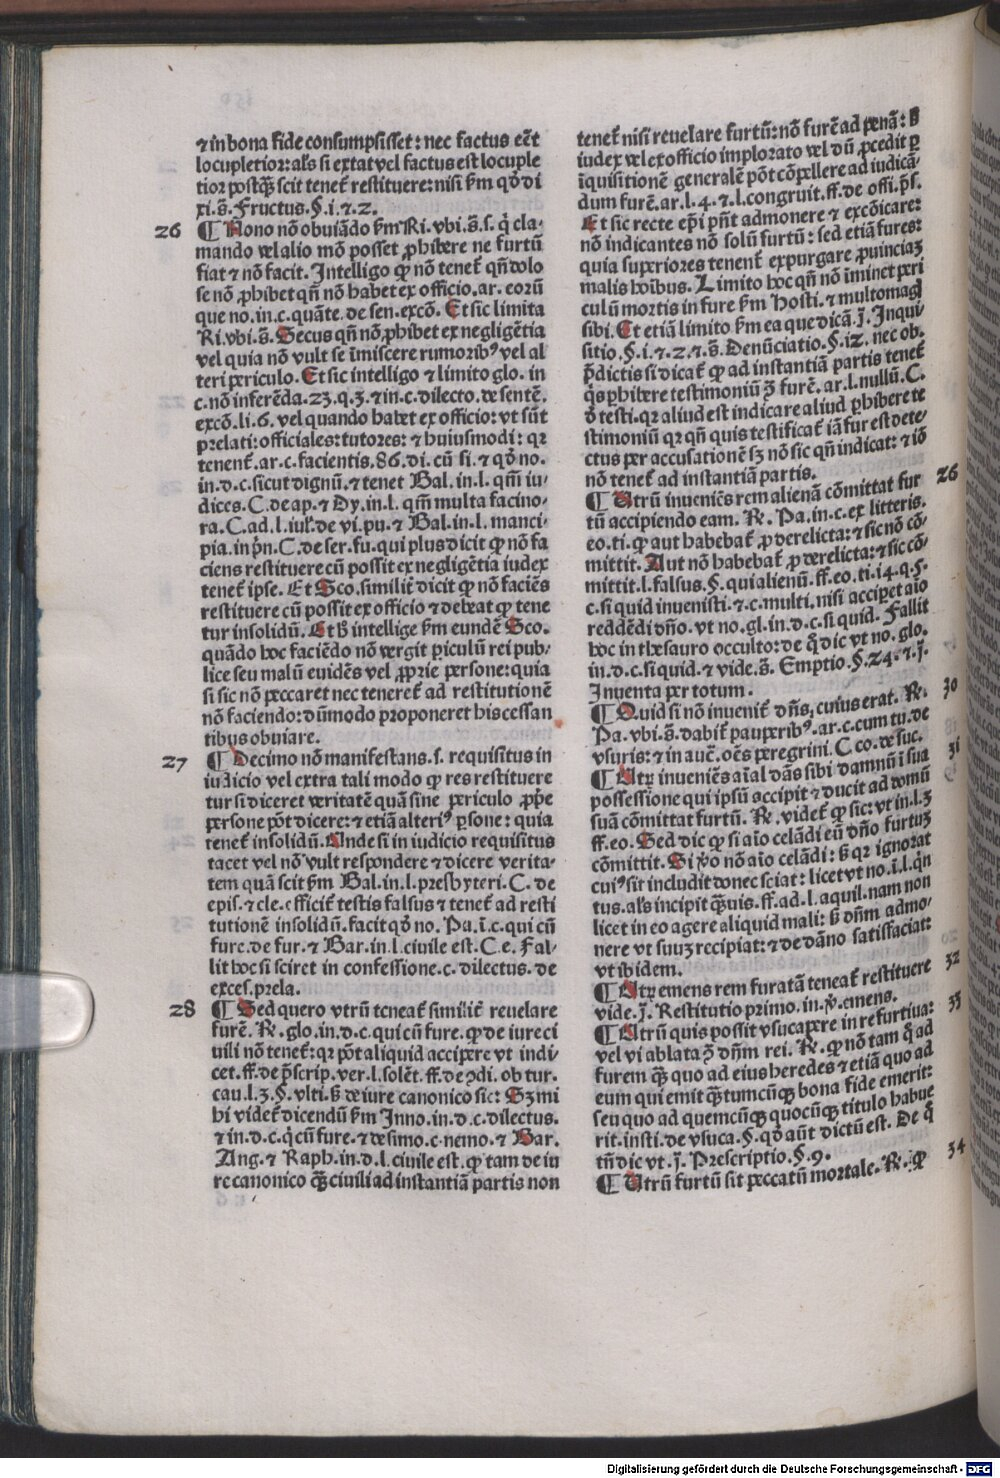 ⁊ in bona fide consumpsisset: nec factus eēt
locupletior: als̄ si extat vel factus est locuple
tior postq̄ꝫ scit tenet᷑ restituere: nisi ẜm qd̓ di
xi.s̄. Fructus.§.i.⁊.2.
26 ¶ Nono nō obuiādo ẜm Ri. vbi.s̄.s. q̇ cla-
mando vel alio mō posset ꝓhibere ne furtū
fiat ⁊ nō facit. Intelligo ꝙ nō tenet᷑ qn̄ dolo
se nō ꝓhibet qn̄ nō habet ex officio. ar. eorū
que no. in. c. quāte. de sen. excō. Et sic limita
Ri. vbi.s̄. Secus qn̄ nō ꝓhibet ex negligētia
vel quia nō vult se īmiscere rumoribꝰ vel al
teri periculo. Et sic intelligo ⁊ limito glo. in
c. nō inferēda. 23. q. 3. ⁊ in. c. dilecto. de sentē.
excō. li. 6. vel quando habet ex officio: vt sūt
prelati: officiales: tutores: ⁊ huiusmodi: qꝛ
tenent᷑. ar. c. facientis. 86. di. cū si. ⁊ qd̓ no.
in. d. c. sicut dignū. ⁊ tenet Bal. in. l. qm̄ iu-
dices. C. de ap. ⁊ Dy. in. l. qm̄ multa facino-
ra. C. ad. l. iul̓. de vi. pu. ⁊ Bal. in. l. manci-
pia. in pn̄. C. de ser. fu. qui plus dicit ꝙ nō fa
ciens restituere cū possit ex negligētia iudex
tenet᷑ ipse. Et Sco. similit᷑ dicit ꝙ nō faciēs
restituere cū possit ex officio ⁊ debeat ꝙ tene
tur insolidū. Et h̓ intellige ẜm eundē Sco.
quādo hoc faciēdo nō vergit ꝑiculū rei pub-
lice seu malū euidēs vel ꝓprie persone: quia
si sic nō peccaret nec teneret᷑ ad restitutionē
nō faciendo: dūmodo proponeret his cessan
tibus obuiare.
27 ¶ Decimo nō manifestans. s. requisitus in
iudicio vel extra tali modo ꝙ res restituere
tur si diceret veritatē quā sine periculo ꝓp̄e
persone pōt dicere: ⁊ etiā alteriꝰ ꝑsone: quia
tenet᷑ insolidū. Unde si in iudicio requisitus
tacet vel nō vult respondere ⁊ dicere verita-
tem quā scit ẜm Bal. in. l. presbyteri. C. de
epis. ⁊ cle. efficit᷑ testis falsus ⁊ tenet᷑ ad resti
tutionē insolidū. facit qd̓ no. Pa. ī. c. qui cū
fure. de fur. ⁊ Bar. in. l. ciuile est. C. e. Fal-
lit hoc si sciret in confessione. c. dilectus. de
exces. prela.
28 ¶ Sed quero vtrū teneat᷑ similit᷑ reuelare
furē. R̄. glo. in. d. c. qui cū fure. ꝙ de iure ci
uili nō tenet᷑: qꝛ pōt aliquid accipere vt indi-
cet. ff. de p̄scrip. ver. l. solēt. ff. de ↄdi. ob tur.
cau. l. 3. §. vlti. s̓ de iure canonico sic: Sꝫ mi
hi videt᷑ dicendū ẜm Inno. in. d. c. dilectus.
⁊ in. d. c. q̇ cū fure. ⁊ de simo. c. nemo. ⁊ Bar.
Ang. ⁊ Raph. in. d. l. ciuile est. ꝙ tam de iu
re canonico q̄ꝫ ciuili ad instantiā partis non
tenet᷑ nisi reuelare furtū: nō furē ad penā: s̓
iudex vel ex officio implorato vel dū ꝓcedit ꝑ
īquisitionē generalē pōt cōpellere ad iudicā-
dum furē. ar. l. 4. ⁊. l. congruit. ff. de offi. p̄s.
Et sic recte ep̄i pn̄t admonere ⁊ excōicare:
nō indicantes nō solū furtū: sed etiā fures:
quia superiores tenent᷑ expurgare ꝓuinciaꝫ
malis hoībus. Limito hoc qn̄ nō īminet peri
culū mortis in fure ẜm Hosti. ⁊ multomagꝭ
sibi. Et etiā limito ẜm ea que dicā. j̄. Inqui-
sitio. §. i. ⁊. 2. ⁊. s̄. Denūciatio. §. 12. nec ob.
p̄dictis si dicat᷑ ꝙ ad instantiā partis tenet᷑
q̇s ꝑhibere testimoniū ꝯ̄ furē. ar. l. nullū. C.
d̓ testi. qꝛ aliud est indicare aliud ꝑhibere te
stimoniū qꝛ qn̄ quis testificat᷑ iā fur est dete-
ctus per accusationē sꝫ nō sic qn̄ indicat: ⁊ iō
nō tenet᷑ ad instantiā partis.
26 ¶ Utrū inueniēs rem alienā cōmittat fur
tū accipiendo eam. R̄. Pa. in. c. ex litteris.
eo. ti. ꝙ aut habebat᷑ ꝓ derelicta: ⁊ sic nō cō-
mittit. Aut nō habebat᷑ ꝓ derelicta: ⁊ sic cō-
mittit. l. falsus. §. qui alienū. ff. eo. ti. 14. q. 5.
c. si quid inuenisti. ⁊. c. multi. nisi acciperet aīo
reddēdi dn̄o. vt no. gl. in. d. c. si quid. Fallit
hoc in thesauro occulto: de q̇ dic vt no. glo.
in. d. c. si quid. ⁊ vide. s̄. Emptio. §. 24. ⁊. j̄.
Inuenta per totum.
30 ¶ Quid si nō inuenit᷑ dn̄s, cuius erat. R̄.
Pa. vbi. s̄. dabit᷑ pauperibꝰ. ar. c. cum tu. de
vsuris: ⁊ in auc̄. oēs peregrini. C. co. de suc.
31 ¶ Utꝝ inueniēs aīal dās sibi damnū ī sua
possessione qui ipsū accipit ⁊ ducit ad domū
suā cōmittat furtū. R̄. videt᷑ ꝙ sic: vt in. l. 3
ff. eo. Sed dic ꝙ si aīo celādi eū dn̄o furtuꝫ
cōmittit. Si ꝟo nō aīo celādi: s̓ qꝛ ignorat
cuiꝰ sit includit donec sciat: licet vt no. ī. l. q̇n
tus. als̄ incipit q̄ꝫuis. ff. ad. l. aquil. nam non
licet in eo agere aliquid mali: s̓ dn̄m admo-
nere vt suuꝫ recipiat: ⁊ de dāno satisfaciat:
vt ibidem.
32 ¶ Utꝝ emens rem furatā teneat᷑ restituere
vide. j̄. Restitutio primo. in. ꝟ. emens.
33 ¶ Utrū quis possit vsucapere in re furtiua:
vel vi ablata ꝯ̄ dn̄m rei. R̄. ꝙ nō tam q̄ ad
furem q̄ꝫ quo ad eius heredes ⁊ etiā quo ad
eum qui emit q̄ꝫtumcūqꝫ bona fide emerit:
seu quo ad quemcūqꝫ quocūqꝫ titulo habue
rit. insti. de vsuca. §. qd̓ aūt dictū est. De q̇
tn̄ dic vt. j̄. Prescriptio. §. 9.
34 ¶ Utrū furtū sit peccatū mortale. R̄. ꝙ
Digitalisierung gefördert durch die Deutsche Forschungsgemeinschaft - DFG